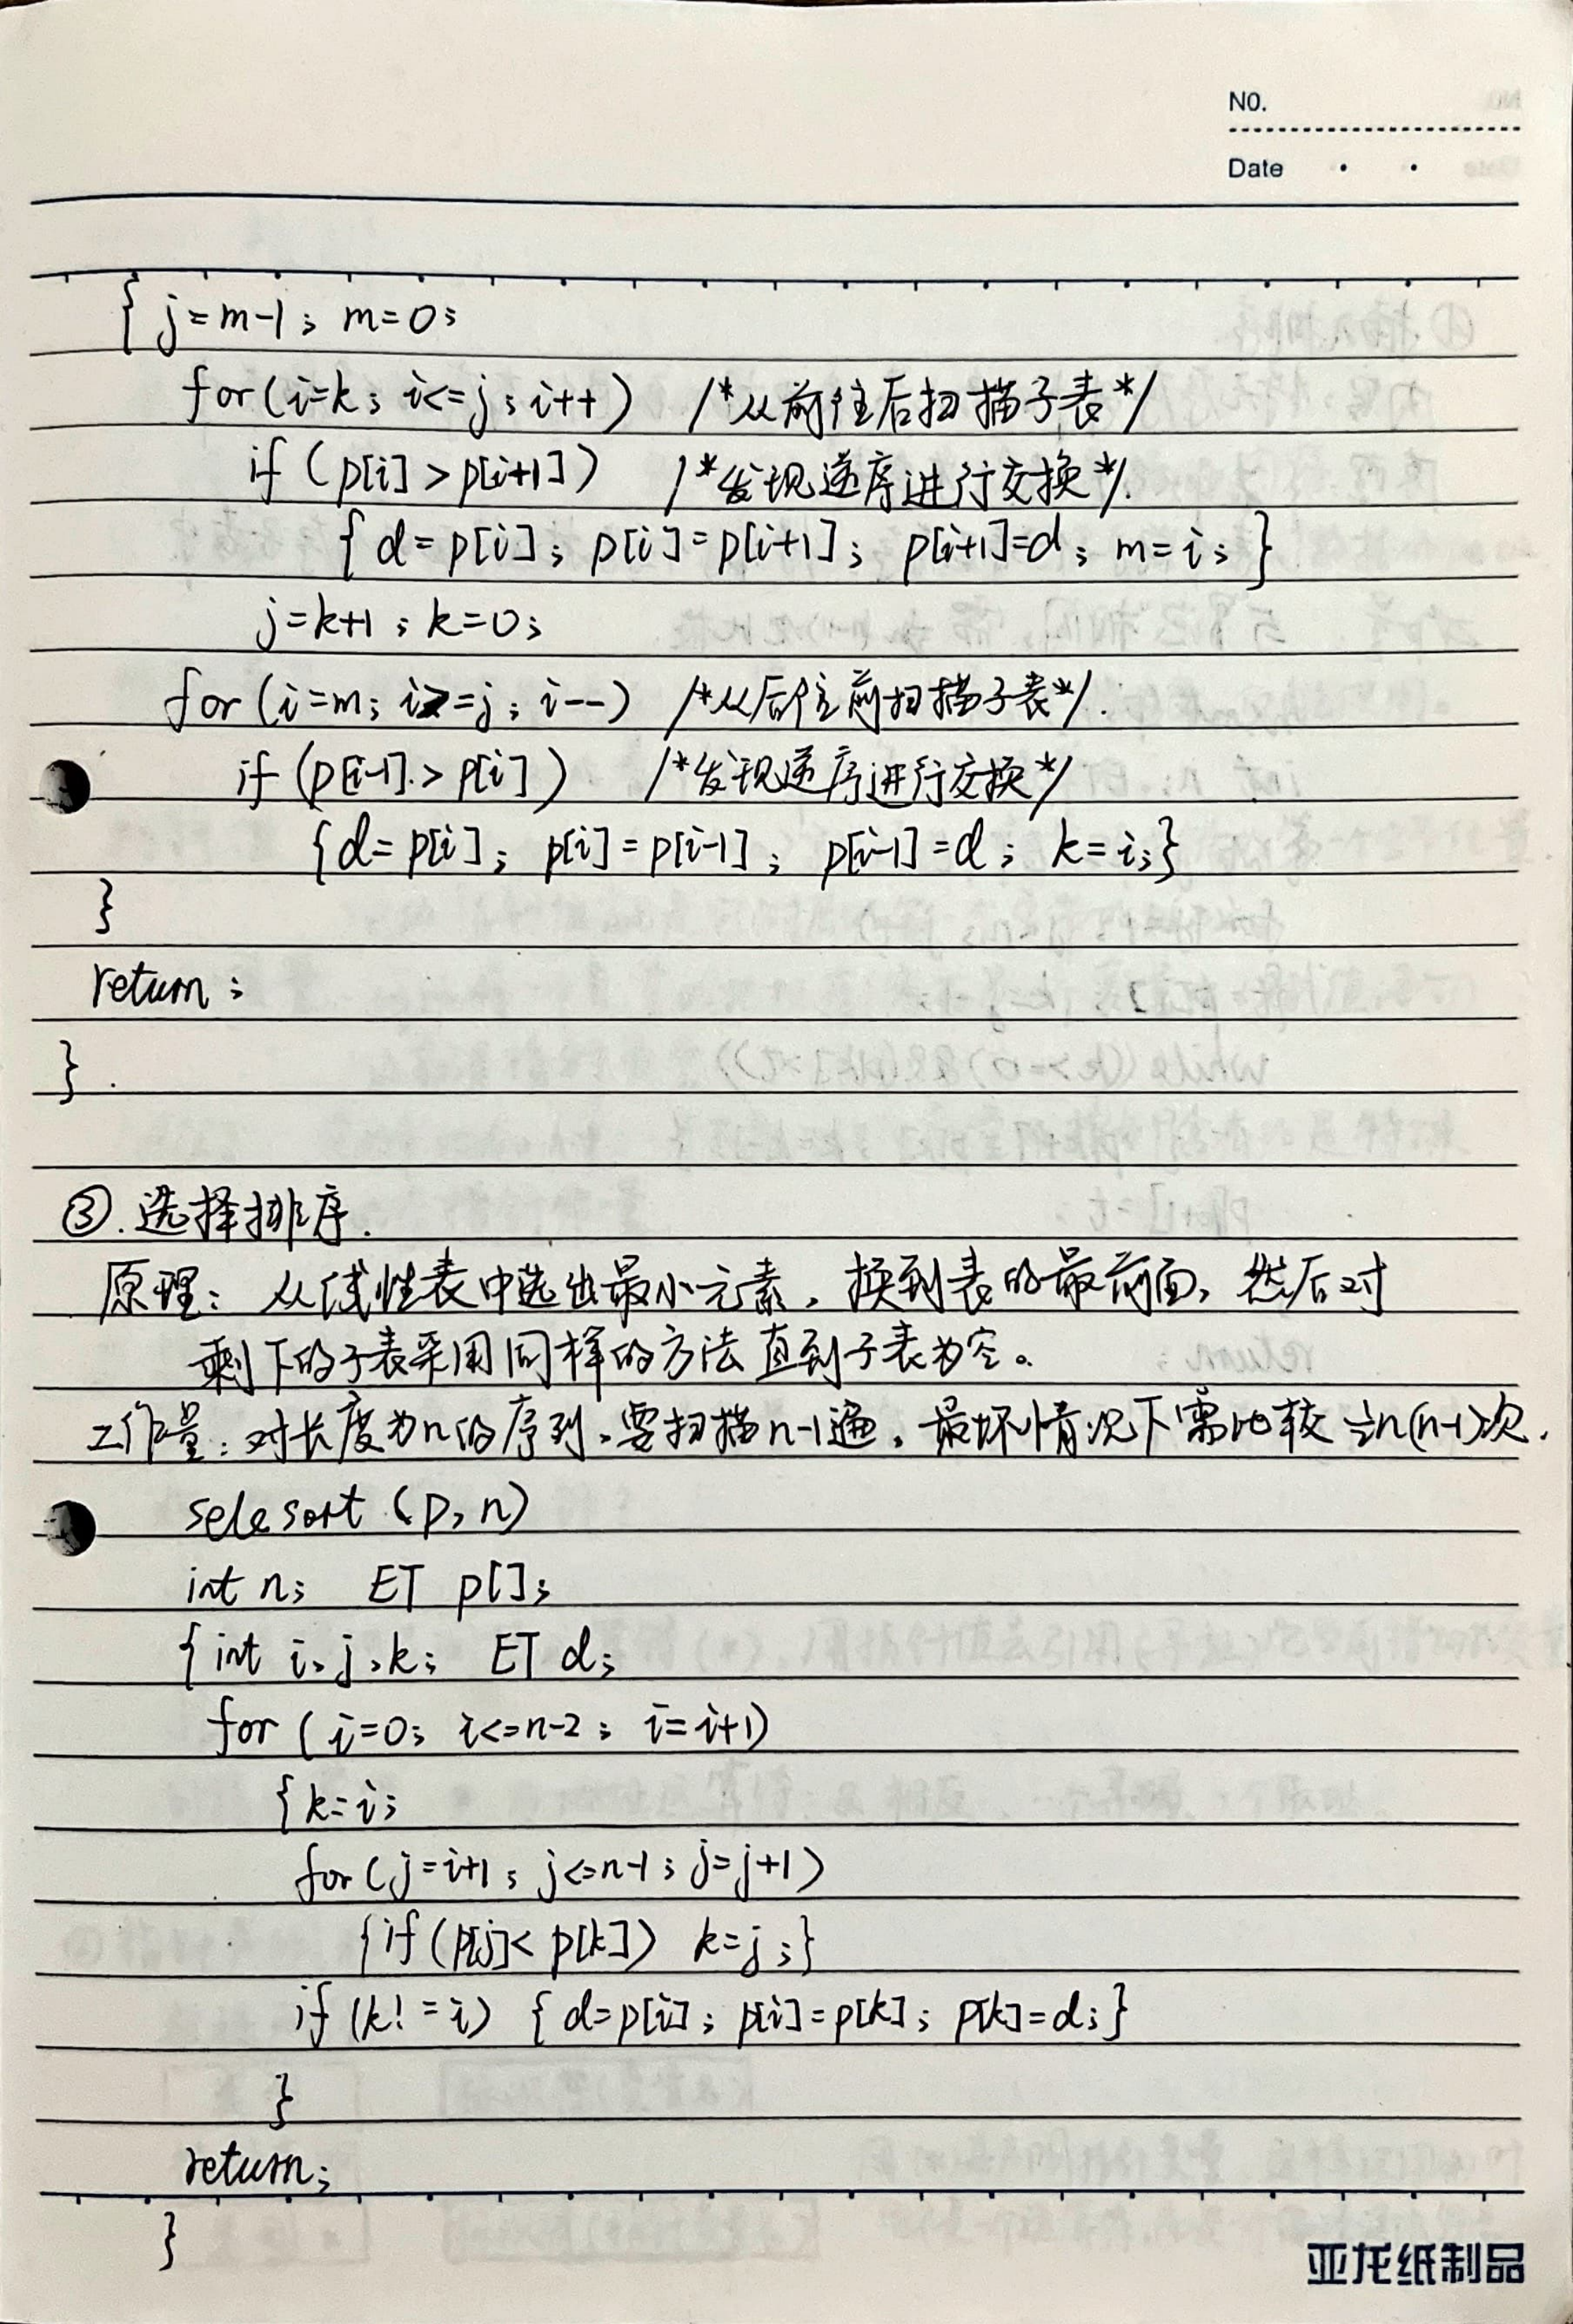 NO.
Date
{ j=m-1; m=0;
for(i=k; i<=j; i++) /*从前往后扫描子表*/
if (p[i]>p[i+1]) /*发现逆序进行交换*/.
{ d=p[i]; p[i]=p[i+1]; p[i+1]=d; m=i; }
j=k+1; k=0;
for (i=m; i>=j; i--) /*从后往前扫描子表*/.
if (p[i-1].>p[i]) /*发现逆序进行交换*/
{d=p[i]; p[i]=p[i-1]; p[i-1]=d; k=i;}
}
return;
}.
③.选择排序.
原理: 从线性表中选出最小元素, 换到表的最前面, 然后对
剩下的子表采用同样的方法直到子表为空。
工作量: 对长度为n的序列,要扫描n-1遍, 最坏情况下需比较½n(n-1)次.
selesort (p,n)
int n; ET p[];
{int i,j,k; ET d;
for (i=0; i<=n-2; i=i+1)
{k=i;
for(j=i+1; j<=n-1; j=j+1)
{if(p[j]<p[k]) k=j;}
if (k!=i) {d=p[i]; p[i]=p[k]; p[k]=d;}
}
return;
}
亚龙纸制品